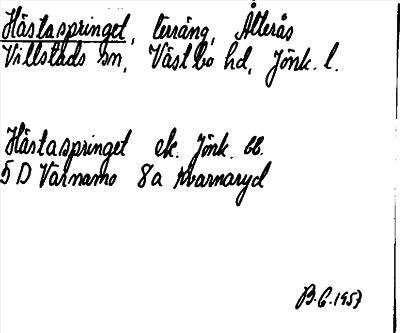 Hästaspringet, terräng, Ålterås
Villstads sn, Västbo hd, Jönk. l.
Hästaspringet ek. Jönk. bl.
5 D Värnamo 8a Kvarnaryd
B.G. 1957